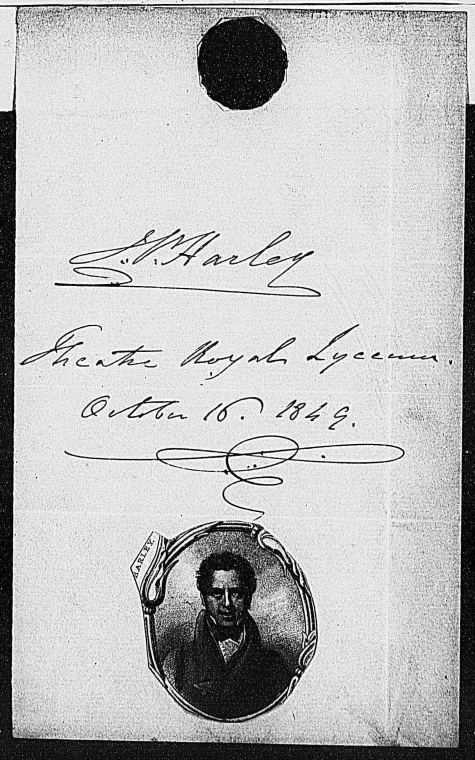 J. P. Harley
Theatre Royal Lyceum.
October 16. 1849.
HARLEY.